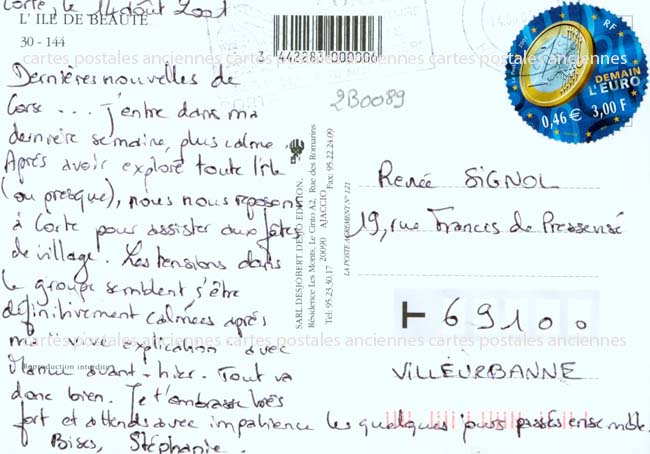 Corte, le 14 Août 2001
L'ILE DE BEAUTÉ
30 - 144
3 442283 000006
cartes postales anciennes
Dernières nouvelles de
Corse ... J'entre dans ma
dernière semaine, plus calme.
Après avoir exploré toute l'île
(ou presque), nous nous reposons
à Corte pour assister aux fêtes
de village. Les tensions dans
le groupe semblent s'être
définitivement calmées après
ma vive explication avec
avant-hier. Tout va
donc bien. Je t'embrasse très
fort et attends avec impatience les quelques jours passés ensemble.
Bises, Stéphanie.
Reproduction interdite
2B0089
SARL DESJOBERT DESJO EDITION,
Résidence Les Monts, Le Cinto A2, Rue des Romarins
Tel: 95.23.30.17 20090 AJACCIO Fax: 95.22.24.09
LA POSTE AGREMENT N° 121
RF
DEMAIN
L'EURO
0,46 € 3,00 F
Renée SIGNOL
19, rue Francis de Pressensé
69100
VILLEURBANNE
cartes postales anciennes
cartes postales anciennes